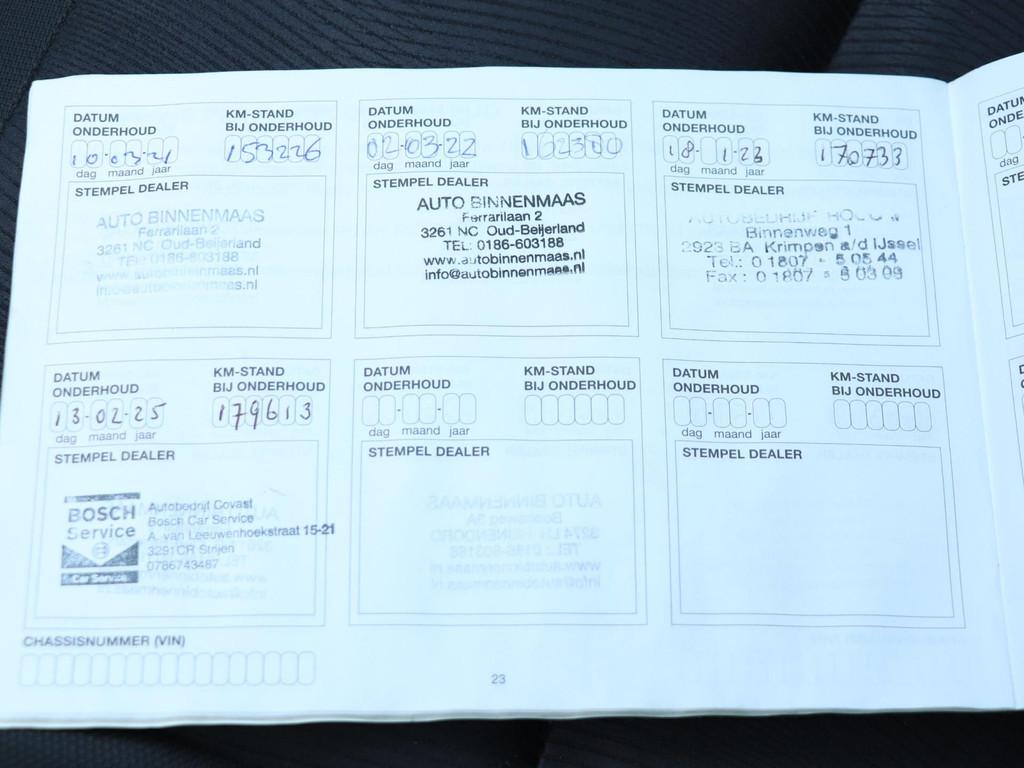 DATUM ONDERHOUD
KM-STAND BIJ ONDERHOUD
10-03-21
153226
dag maand jaar
STEMPEL DEALER
AUTO BINNENMAAS
Ferrarilaan 2
3261 NC Oud-Beijerland
TEL: 0186-603188
www.autobinnenmaas.nl
info@autobinnenmaas.nl
DATUM ONDERHOUD
KM-STAND BIJ ONDERHOUD
02-03-22
dag maand jaar
STEMPEL DEALER
AUTO BINNENMAAS
Ferrarilaan 2
3261 NC Oud-Beijerland
TEL: 0186-603188
www.autobinnenmaas.nl
info@autobinnenmaas.nl
DATUM ONDERHOUD
KM-STAND BIJ ONDERHOUD
18-1-23
170733
dag maand jaar
STEMPEL DEALER
AUTOBEDRIJF
Binnenweg 1
2923 BA Krimpen a/d IJssel
Tel.: 0 1807 - 5 05 44
Fax : 0 1807 -
DATUM ONDERHOUD
KM-STAND BIJ ONDERHOUD
13-02-25
179613
dag maand jaar
STEMPEL DEALER
BOSCH
Service
Car Service
Autobedrijf Govast
Bosch Car Service
A. van Leeuwenhoekstraat 15-21
3291CR Strijen
0786743487
DATUM ONDERHOUD
KM-STAND BIJ ONDERHOUD
dag maand jaar
STEMPEL DEALER
DATUM ONDERHOUD
KM-STAND BIJ ONDERHOUD
dag maand jaar
STEMPEL DEALER
CHASSISNUMMER (VIN)
23